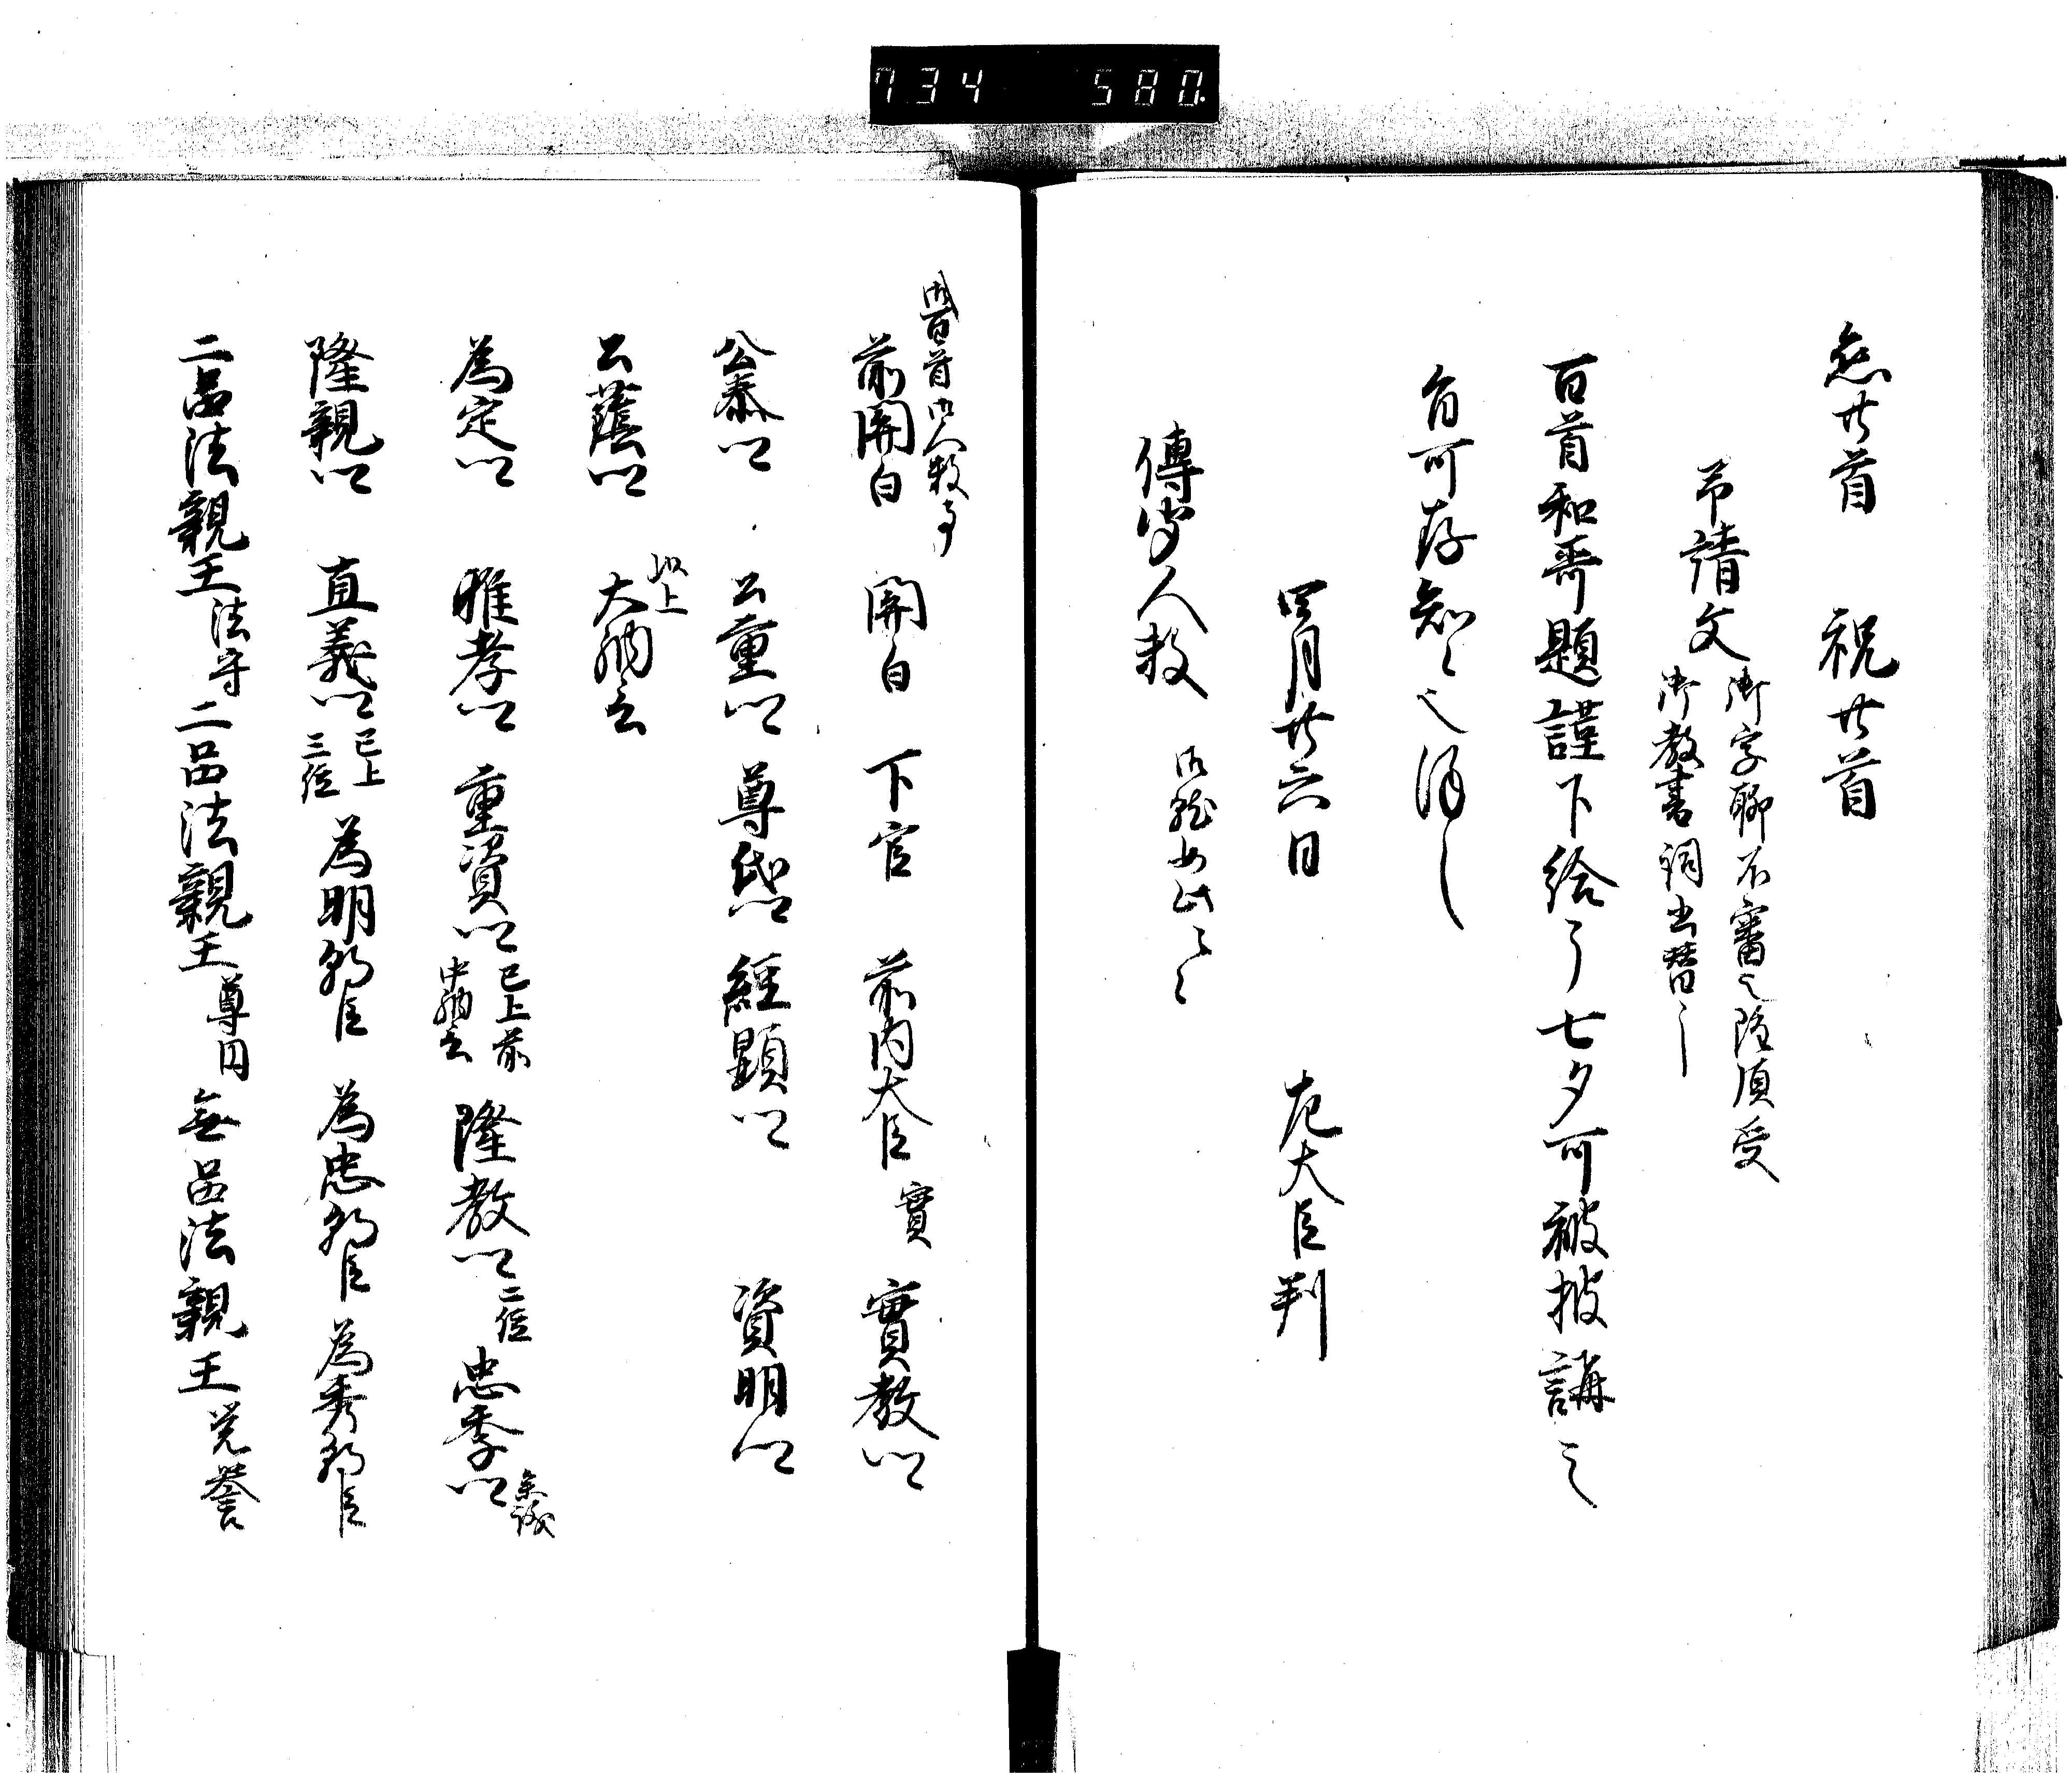 734 580.
恋廿首 祝廿首
請文 御字聊不審之間頂受
御教書詞書替之
百首和哥題謹下給了七夕可被披講之
旨可存知之由
四月廿六日 左大臣判
傳聞人数 如此云々
百首御人数事
前関白 関白 下官 前内大臣 實 實教卿
公泰卿 公重卿 尊氏卿 經顕卿 資明卿
公蔭卿 以上大納言
為定卿 雅孝卿 重資卿 已上前中納言 隆教卿 二位 忠季卿 参議
隆親卿 直義卿 已上三位 為明朝臣 為忠朝臣 為秀朝臣
二品法親王 法守 二品法親王 尊円 無品法親王 覚誉